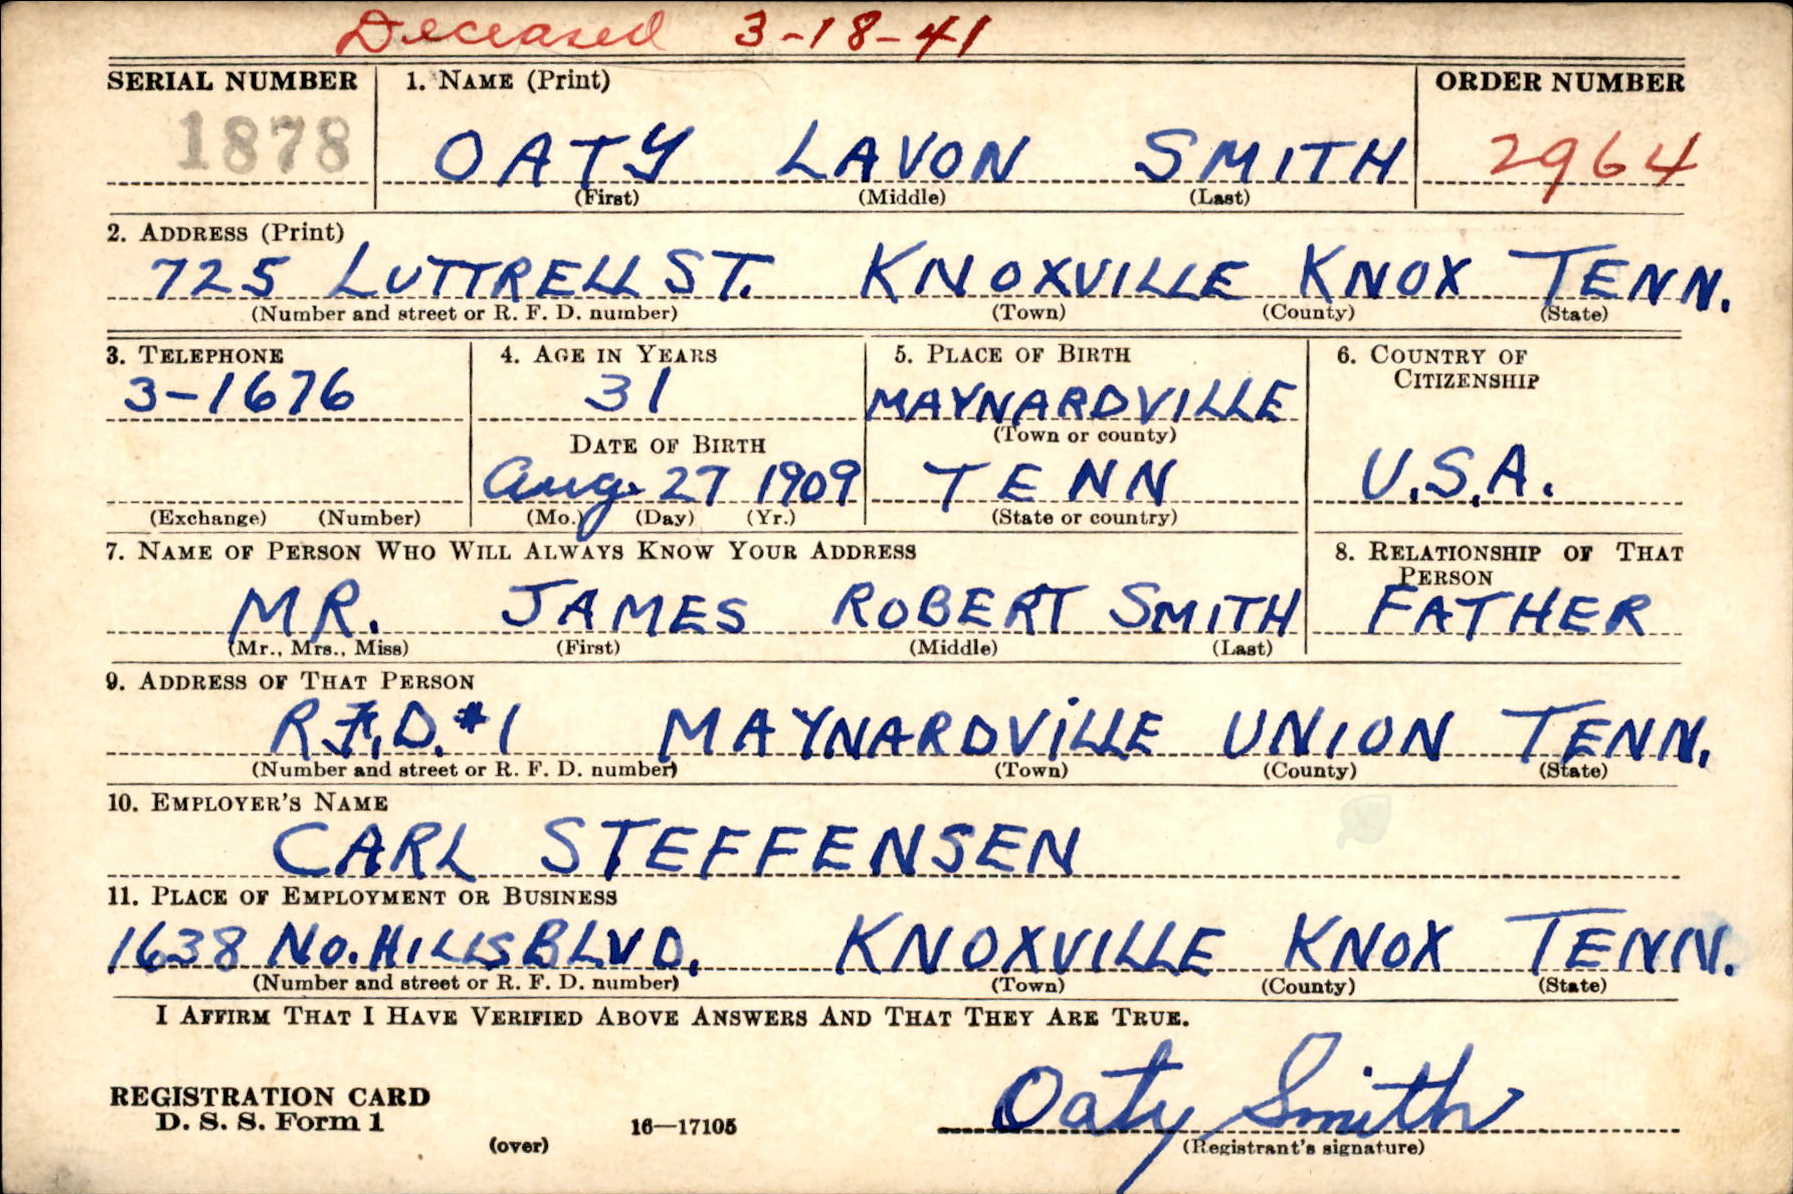 Deceased 3-18-41
SERIAL NUMBER 1. NAME (Print) ORDER NUMBER
1878 OATY LAVON SMITH 2964
(First) (Middle) (Last)
2. ADDRESS (Print)
725 LUTTRELL ST. KNOXVILLE KNOX TENN.
(Number and street or R. F. D. number) (Town) (County) (State)
3. TELEPHONE 4. AGE IN YEARS 5. PLACE OF BIRTH 6. COUNTRY OF
CITIZENSHIP
3-1676 31 MAYNARDVILLE
(Town or county)
DATE OF BIRTH
Aug. 27 1909 TENN U.S.A.
(Exchange) (Number) (Mo.) (Day) (Yr.) (State or country)
7. NAME OF PERSON WHO WILL ALWAYS KNOW YOUR ADDRESS 8. RELATIONSHIP OF THAT
PERSON
MR. JAMES ROBERT SMITH FATHER
(Mr., Mrs., Miss) (First) (Middle) (Last)
9. ADDRESS OF THAT PERSON
R.F.D. #1 MAYNARDVILLE UNION TENN.
(Number and street or R. F. D. number) (Town) (County) (State)
10. EMPLOYER'S NAME
CARL STEFFENSEN
11. PLACE OF EMPLOYMENT OR BUSINESS
1638 NO. HILLS BLVD. KNOXVILLE KNOX TENN.
(Number and street or R. F. D. number) (Town) (County) (State)
I AFFIRM THAT I HAVE VERIFIED ABOVE ANSWERS AND THAT THEY ARE TRUE.
REGISTRATION CARD
D. S. S. Form 1 16—17105 Oaty Smith
(over) (Registrant's signature)